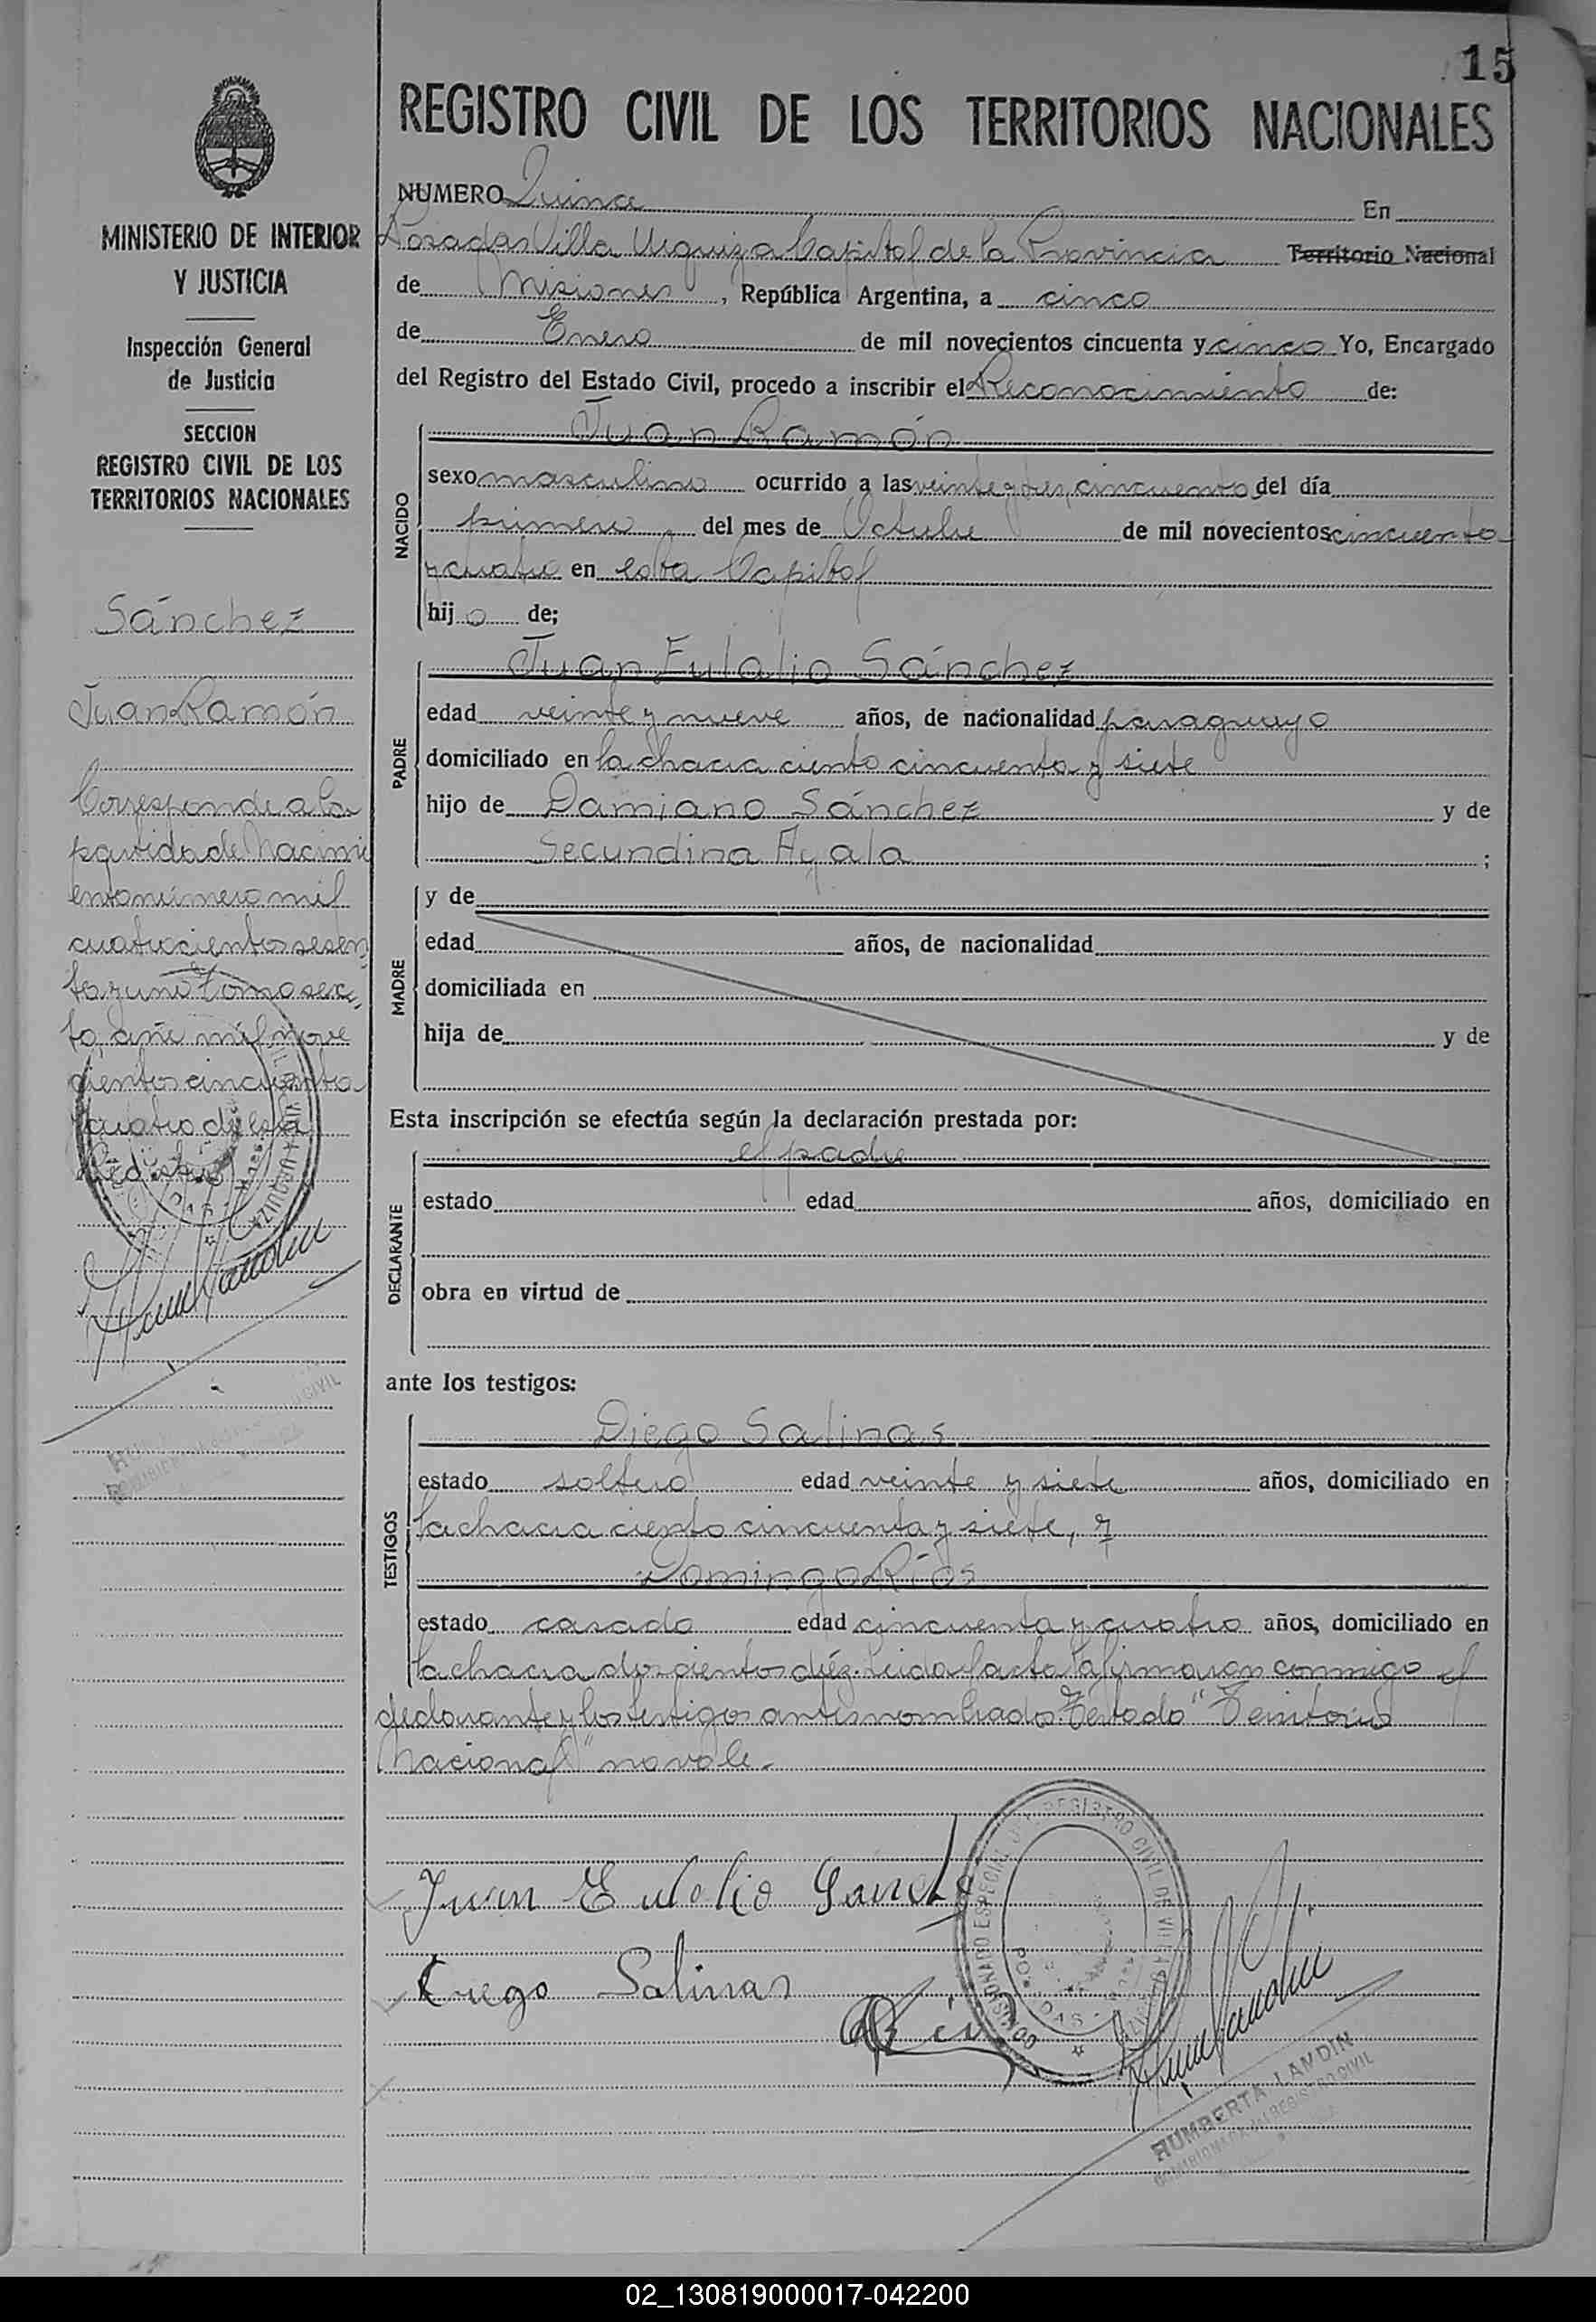 15
REGISTRO CIVIL DE LOS TERRITORIOS NACIONALES
NUMERO Quince En
Posadas Villa Urquiza Capital de la Provincia Territorio Nacional
de Misiones, República Argentina, a cinco
de Enero de mil novecientos cincuenta y cinco Yo, Encargado
del Registro del Estado Civil, procedo a inscribir el Reconocimiento de:
NACIDO
Juan Ramón
sexo masculino ocurrido a las veinte y tres, cincuenta del día
primero del mes de Octubre de mil novecientos cincuenta
y cuatro en esta Capital
hijo de;
PADRE
Juan Eulalio Sánchez
edad veinte y nueve años, de nacionalidad paraguayo
domiciliado en la chacra ciento cincuenta y siete
hijo de Damiano Sánchez y de
Secundina Ayala ;
MADRE
y de
edad años, de nacionalidad
domiciliada en
hija de y de
Esta inscripción se efectúa según la declaración prestada por:
DECLARANTE
el padre
estado edad años, domiciliado en
obra en virtud de
ante los testigos:
TESTIGOS
Diego Salinas
estado soltero edad veinte y siete años, domiciliado en
la chacra ciento cincuenta y siete, y
Domingo Ríos
estado casado edad cincuenta y cuatro años, domiciliado en
la chacra doscientos diéz. Leída el acta la firmaron conmigo el
declarante y los testigos antes nombrados. Testado "Territorio
Nacional" no vale.
Juan Eulalio Sanche
Diego Salinas
Ríos
COMISIONADO ESPECIAL DEL REGISTRO CIVIL DE VILLA URQUIZA
POSADAS
HUMBERTA LANDIN
COMISIONADA DEL REGISTRO CIVIL
MINISTERIO DE INTERIOR
Y JUSTICIA
Inspección General
de Justicia
SECCION
REGISTRO CIVIL DE LOS
TERRITORIOS NACIONALES
Sánchez
Juan Ramón
Corresponde a la
partida de Nacimi
ento número mil
cuatrocientos sesen
ta y uno Tomo sex
to, año mil nove
cientos cincuenta
y cuatro de esta
Registro
02_130819000017-042200